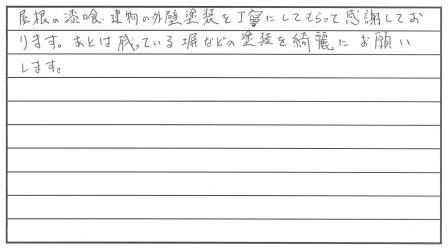 屋根の漆喰、建物の外壁塗装を丁寧にしてもらって感謝してお
ります。あとは残っている塀などの塗装を綺麗にお願い
します。